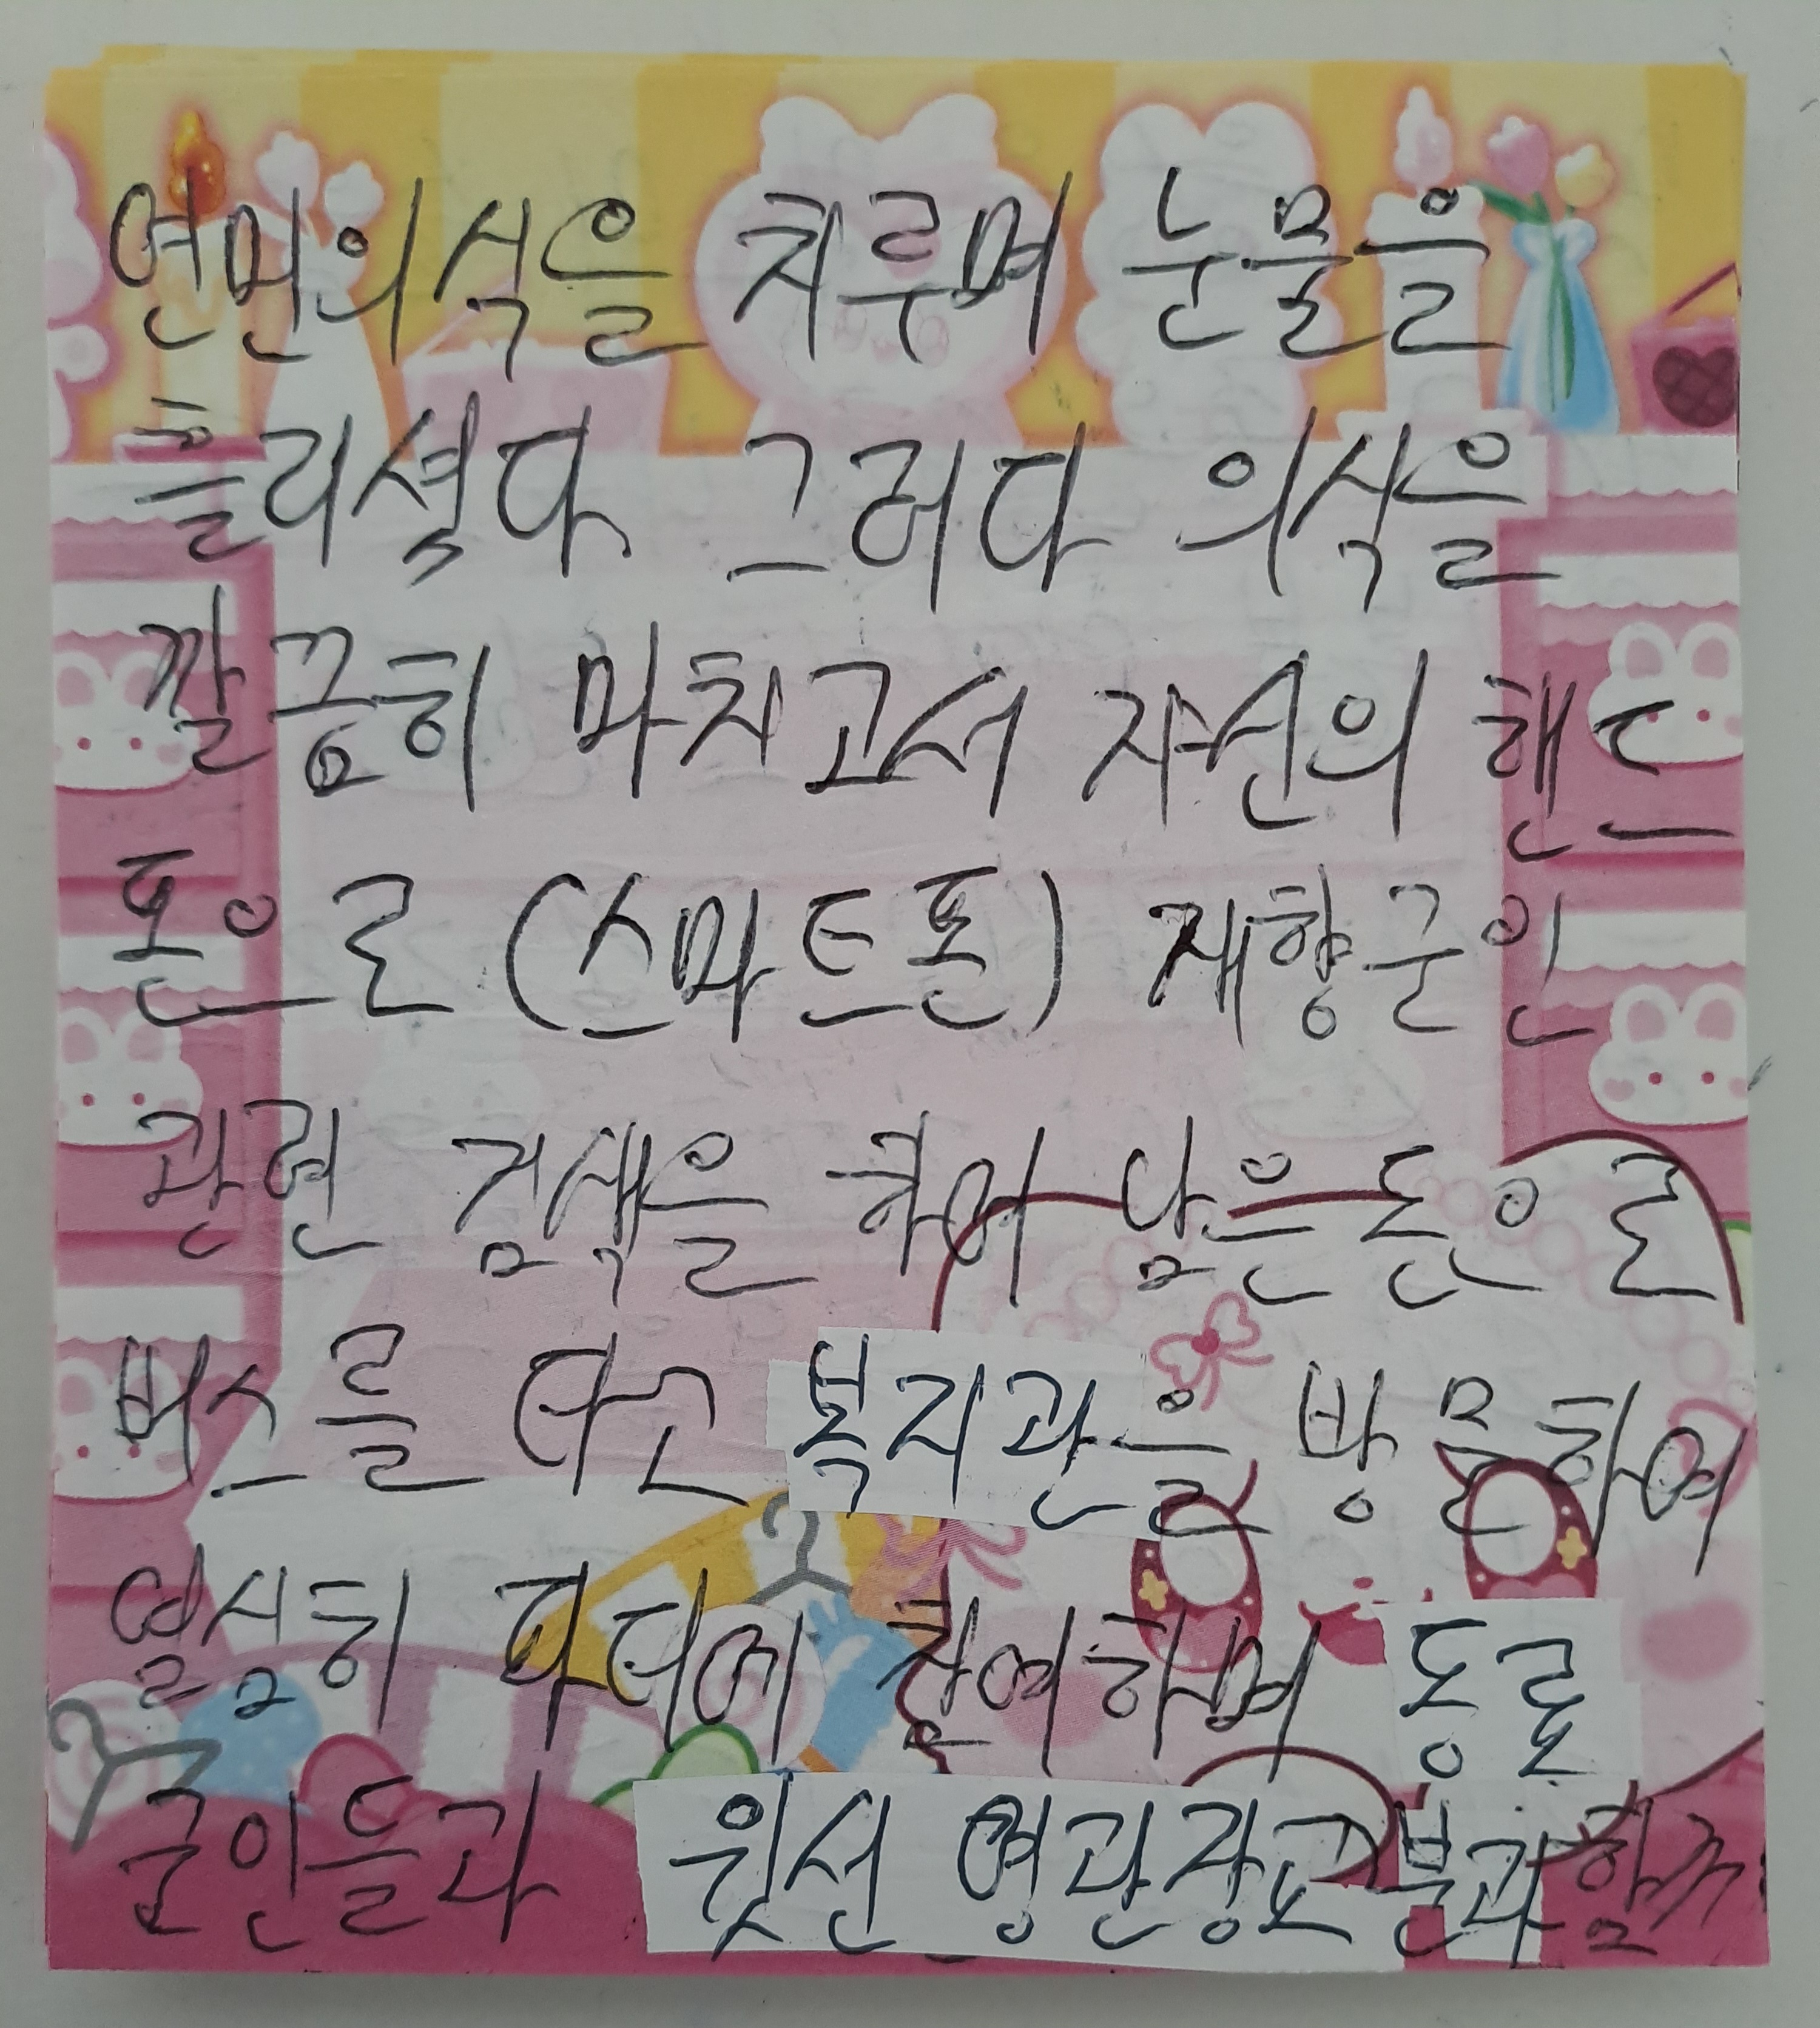 연민의식을 치루며 눈물을
흘리셨다. 그러다 의식을
깔끔히 마치고서 자신의 핸드
폰으로 (스마트폰) 재향군인
관련 검색을 취어 남은 돈으로
버스를 타고 복지관을 방문하여
열심히 파티에 참여하며 동료
군인들과 윗선 영관장교분과 함께